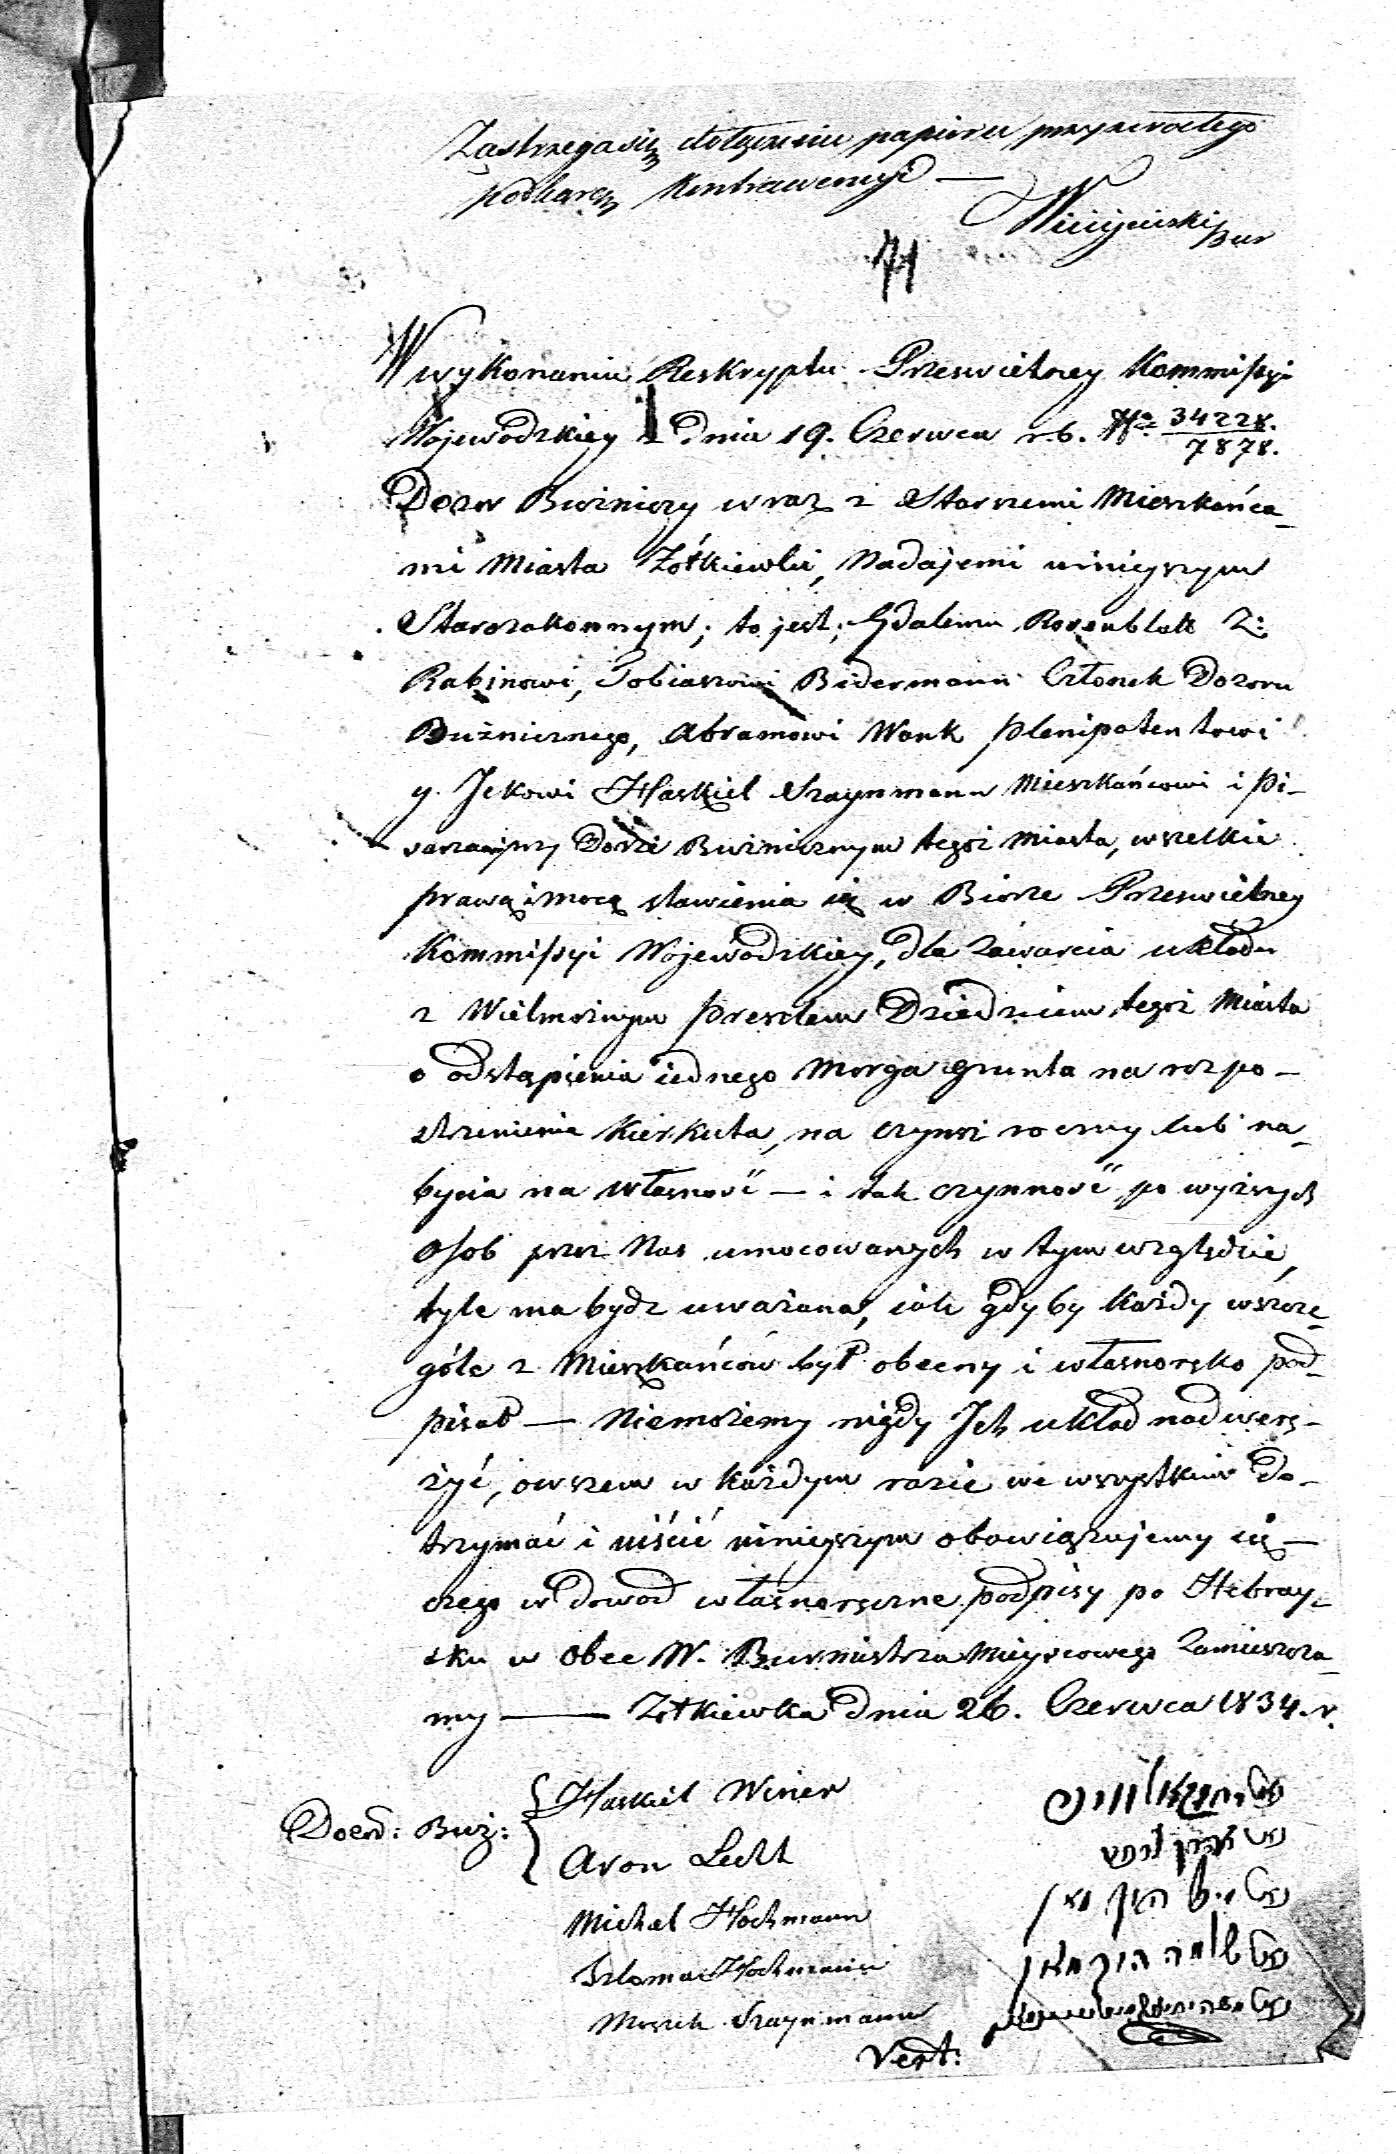 Zastrzega się dołączenie papieru przyzwoitego
pod karą kontrawencyi —
Bur
71
W wykonaniu Reskryptu Prześwietney Kommissyi
Wojewódzkiey z dnia 19. Czerwca r. b. No 34228./7878.
Dozor Bużniczy wraz z Starszemi Mieszkańca-
mi Miasta Żółkiewki, Nadajemi ninieyszym
Starozakonnym; to jest; Gdalemu Rozenblatt Z:
Rabinowi, Tobiaszowi Bidermann Członek Dozoru
Bużnicznego, Abramowi Wank Plenipotentowi
y. Jckowi Haskiel Szaynmann Mieszkańcowi i Pi-
sarzowi przy Dozorze Bużnicznym tegoż Miasta, wszelkie
prawą i mocą stawienia się w Biorze Prześwietney
Kommissyi Wojewódzkiey, dla zawarcia układu
z Wielmożnym Dziedzicem tegoż Miasta
o odstąpienia iednego Morga gruntu na rozpo-
strzenienie Kierkuta, na czynsz roczny lub na-
bycia na własność — i tak czynność powyższych
Osob przez Nas umocowanych w tym względzie,
tyle ma bydz uważana, iak gdyby każdy wszcze-
góle z Mieszkańców był obecny i własnoręko pod-
pisał — Niemożemy nigdy Jch układ nadwerę-
żyć, owszem w każdym razie we wszystkim do-
trzymać i uiścić ninieyszym obowiązujemy się —
czego w dowod własnoręczne podpisy po Hebray-
sku w Obec W. Burmistrza Mieyscowego Zamieszcza-
my — Zołkiewka dnia 26. Czerwca 1834. r.
Haskiel Winer
Dozor: Buż:
Aron Lecht
Michel Hochmann
הוכמאן
Szloma Hochmann
שלמה הוכמאן
Moszek Szaynmann
Vert: